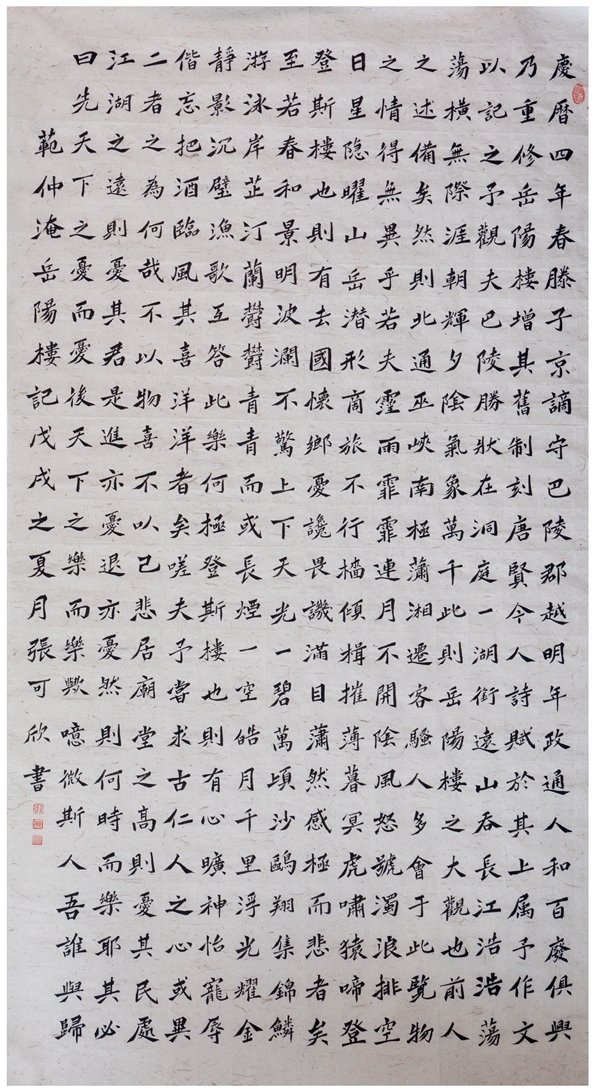 慶曆四年春滕子京謫守巴陵郡越明年政通人和百廢俱興
乃重修岳陽樓增其舊制刻唐賢今人詩賦於其上属予作文
以記之予觀夫巴陵勝狀在洞庭一湖銜遠山吞長江浩浩蕩
蕩橫無際涯朝輝夕陰氣象萬千此則岳陽樓之大觀也前人
之述備矣然則北通巫峽南極瀟湘遷客騷人多會于此覽物
之情得無異乎若夫霪雨霏霏連月不開陰風怒號濁浪排空
日星隐曜山岳潜形商旅不行檣傾楫摧薄暮冥虎嘯猿啼登
登斯樓也則有去國懷鄉憂讒畏譏滿目瀟然感極而悲者矣
至若春和景明波瀾不驚上下天光一碧萬頃沙鷗翔集錦鱗
游泳岸芷汀蘭欝欝青青而或長煙一空皓月千里浮光耀金
靜影沉璧漁歌互答此樂何極登斯樓也則有心曠神怡寵辱
偕忘把酒臨風其喜洋洋者矣嗟夫予嘗求古仁人之心或異
二者之為何哉不以物喜不以己悲居廟堂之高則憂其民處
江湖之遠則憂其君是進亦憂退亦憂然則何時而樂耶其必
曰先天下之憂而憂後天下之樂而樂歟噫微斯人吾誰與歸
範仲淹岳陽樓記戊戌之夏月張可欣書